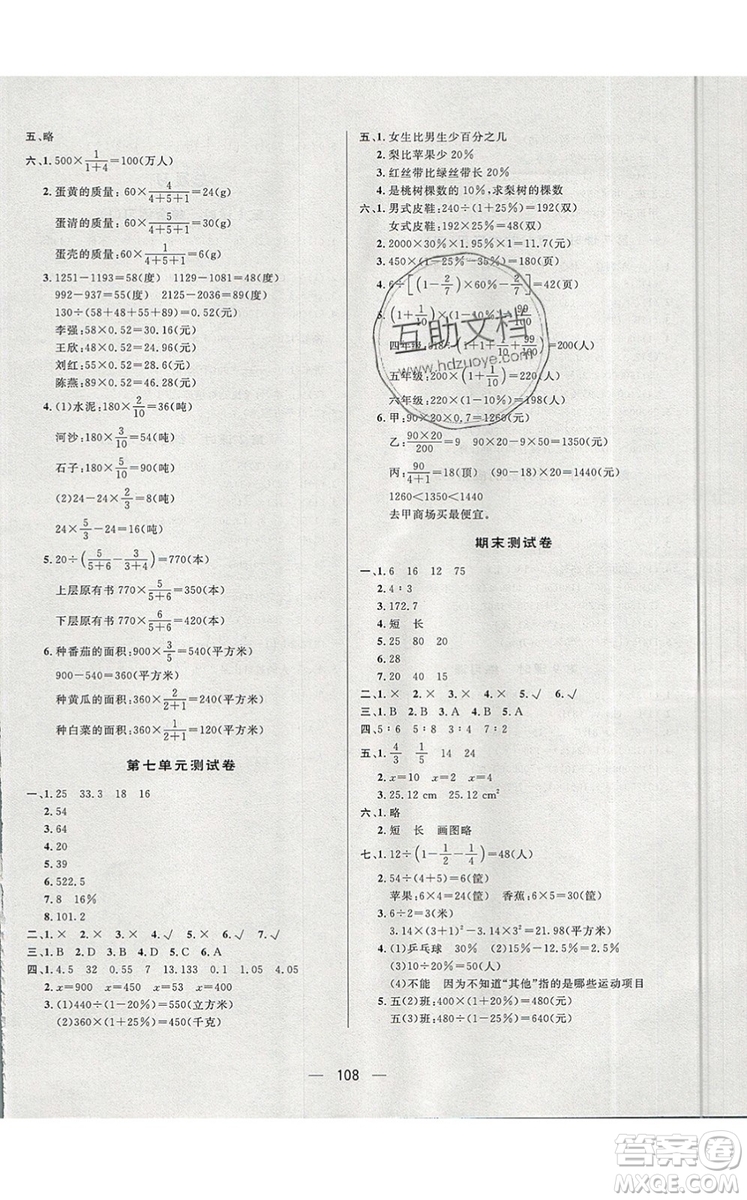 五、略
六、1. 500×1/(1+4)=100(万人)
2. 蛋黄的质量：60×4/(4+5+1)=24(g)
蛋清的质量：60×5/(4+5+1)=30(g)
蛋壳的质量：60×1/(4+5+1)=6(g)
3. 1251－1193=58(度)　1171－1123=48(度)
992－937=55(度)　2125－2036=89(度)
130÷(58+48+55+89)=0.52(元)
李强：58×0.52=30.16(元)
王欣：48×0.52=24.96(元)
刘红：55×0.52=28.6(元)
陈燕：89×0.52=46.28(元)
4. (1)水泥：180×2/10=36(吨)
河沙：180×3/10=54(吨)
石子：180×5/10=90(吨)
(2)24－24×2/3=8(吨)
24×5/3－24=16(吨)
5. 20÷(5/(5+6)－3/(3+4))=770(本)
上层原有书 770×5/(5+6)=350(本)
下层原有书 770×6/(5+6)=420(本)
6. 种番茄的面积：900×3/(3+2)=540(平方米)
900－540=360(平方米)
种黄瓜的面积：360×2/(2+1)=240(平方米)
种白菜的面积：360×1/(2+1)=120(平方米)
第七单元测试卷
一、1. 25　33.3　18　16
2. 54
3. 64
4. 20
5. 39
6. 522.5
7. 8　16%
8. 101.2
二、1. ×　2. ×　3. ×　4. ×　5. ×　6. √　7. √
三、1. B　2. D　3. A　4. C　5. D
四、1. 4.5　32　0.55　7　13.133　0.1　1.05　4.05
2. x=900　x=45　x=53　x=40
3. (1)440÷(1－20%)=550(立方米)
(2)360×(1+25%)=450(千克)
五、1. 女生比男生少百分之几
2. 梨比苹果少 20%
3. 红丝带比绿丝带长 20%
4. 是桃树棵数的 10%,求梨树的棵数
六、1. 男式皮鞋：240÷(1+25%)=192(双)
女式皮鞋：192×25%=48(双)
2. 2000×30%×1.95%×1=11.7(元)
3. 450×(1－25%－35%)=180(页)
4. 6÷[(1－2/7)×60%－2/7]=42(页)
5. (1+1/10)×(1－10%)=99/100
四年级：618÷(1+1+1/10+99/100)=200(人)
五年级：200×(1+1/10)=220(人)
六年级：220×(1－10%)=198(人)
6. 甲：90×20×0.7=1260(元)
乙：90×20/200=9　90×20－9×50=1350(元)
丙：90/(4+1)=18(顶)　(90－18)×20=1440(元)
1260<1350<1440
去甲商场买最便宜。
期末测试卷
一、1. 6　16　12　75
2. 4∶3
3. 172.7
4. 短　长
5. 25　80　20
6. 28
7. 20　40　15
二、1. ×　2. ×　3. ×　4. ×　5. √　6. √
三、1. B　2. B　3. A　4. A　5. B
四、5∶6　5∶8　3∶4　7∶2
五、1. 4/3　1/5　14　24
2. x=10　x=2　x=4
3. 25.12 cm　25.12 cm²
六、1. 略
2. 短　长　画图略
七、1. 12÷(1－1/2－1/4)=48(人)
2. 54÷(4+5)=6(筐)
苹果：6×4=24(筐)　香蕉：6×5=30(筐)
3. 6÷2=3(米)
3.14×(3+1)²－3.14×3²=21.98(平方米)
4. (1)乒乓球　30%　(2)15%－12.5%=2.5%
(3)10÷12.5%=80(人)
(4)不能　因为不知道“其他”指的是哪些运动项目
5. 五(2)班：400×(1+20%)=480(元)
五(3)班：480÷(1－25%)=640(元)
互助文档
www.hdzuoye.com
— 108 —
答案圈
MXQE.COM